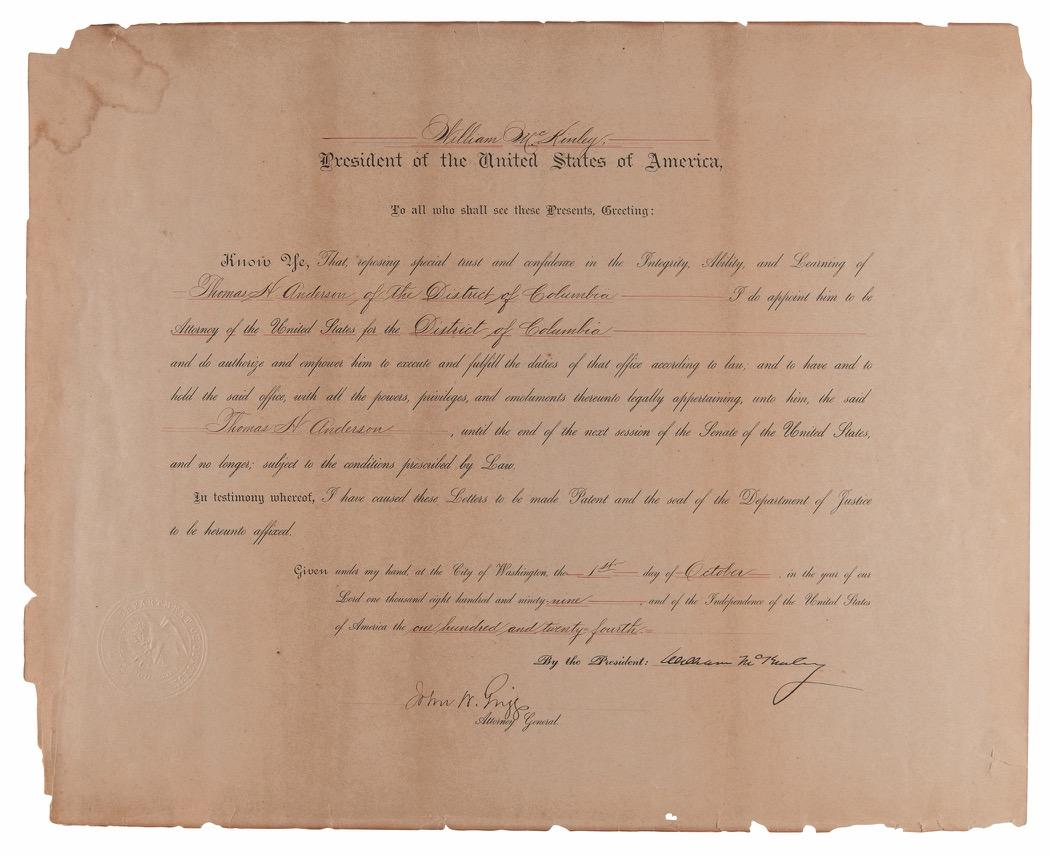 William McKinley,
President of the United States of America,
To all who shall see these Presents, Greeting:
Know Ye, That, reposing special trust and confidence in the Integrity, Ability, and Learning of
Thomas H Anderson, of the District of Columbia I do appoint him to be
Attorney of the United States for the District of Columbia
and do authorize and empower him to execute and fulfill the duties of that office according to law; and to have and to
hold the said office, with all the powers, privileges, and emoluments thereunto legally appertaining, unto him, the said
Thomas H Anderson, until the end of the next session of the Senate of the United States,
and no longer; subject to the conditions prescribed by Law.
In testimony whereof, I have caused these Letters to be made Patent and the seal of the Department of Justice
to be hereunto affixed.
Given under my hand, at the City of Washington, the 1st day of October, in the year of our
Lord one thousand eight hundred and ninety-nine, and of the Independence of the United States
of America the one hundred and twenty-fourth.
By the President: William McKinley
John W. Griggs
Attorney General.